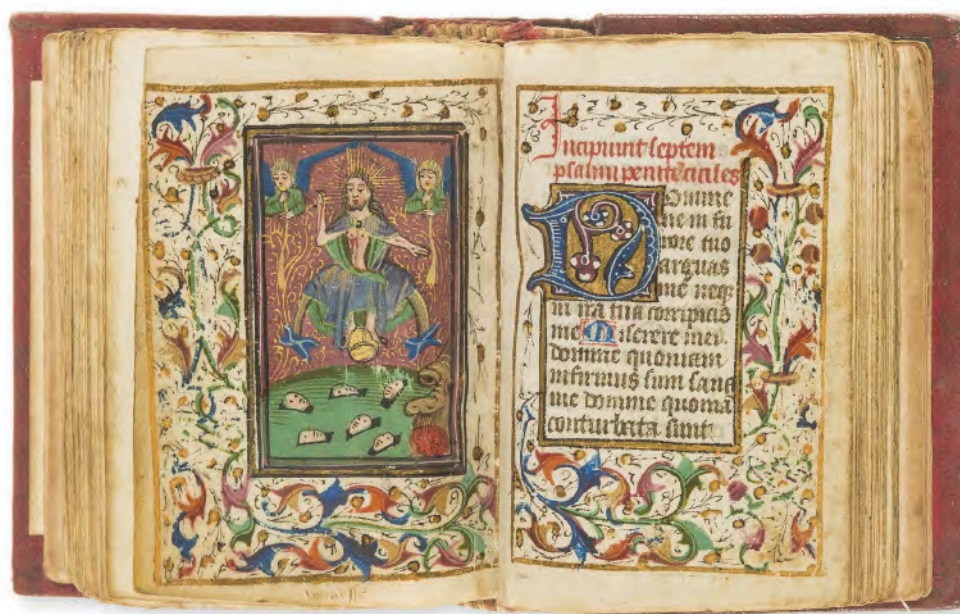 Incipiunt septem
psalmi penitēciales
Domine
ne in fu
rore tuo
arguas
me neq
in ira tua corripias
me Miserere mei
domine quoniam
infirmus sum sana
me domine quoniā
conturbata sunt